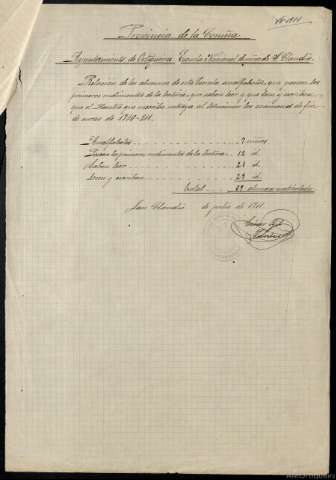 Provincia de la Coruña
Ayuntamiento de Ortigueira Escuela Nacional de niños de Sn Claudio
Relación de los alumnos de esta Escuela analfabetos, que poseen los
primeros rudimentos de la lectura, que saben leer y que leen y escriben
que el Maestro que suscribe entrega al terminar los exámenes de fin
de curso de
Analfabetos 7 niños
Poseen los primeros rudimentos de la lectura 12 id.
Saben leer 21 id.
Leen y escriben 29 id.
Total 69 alumnos matriculados
San Claudio de julio de